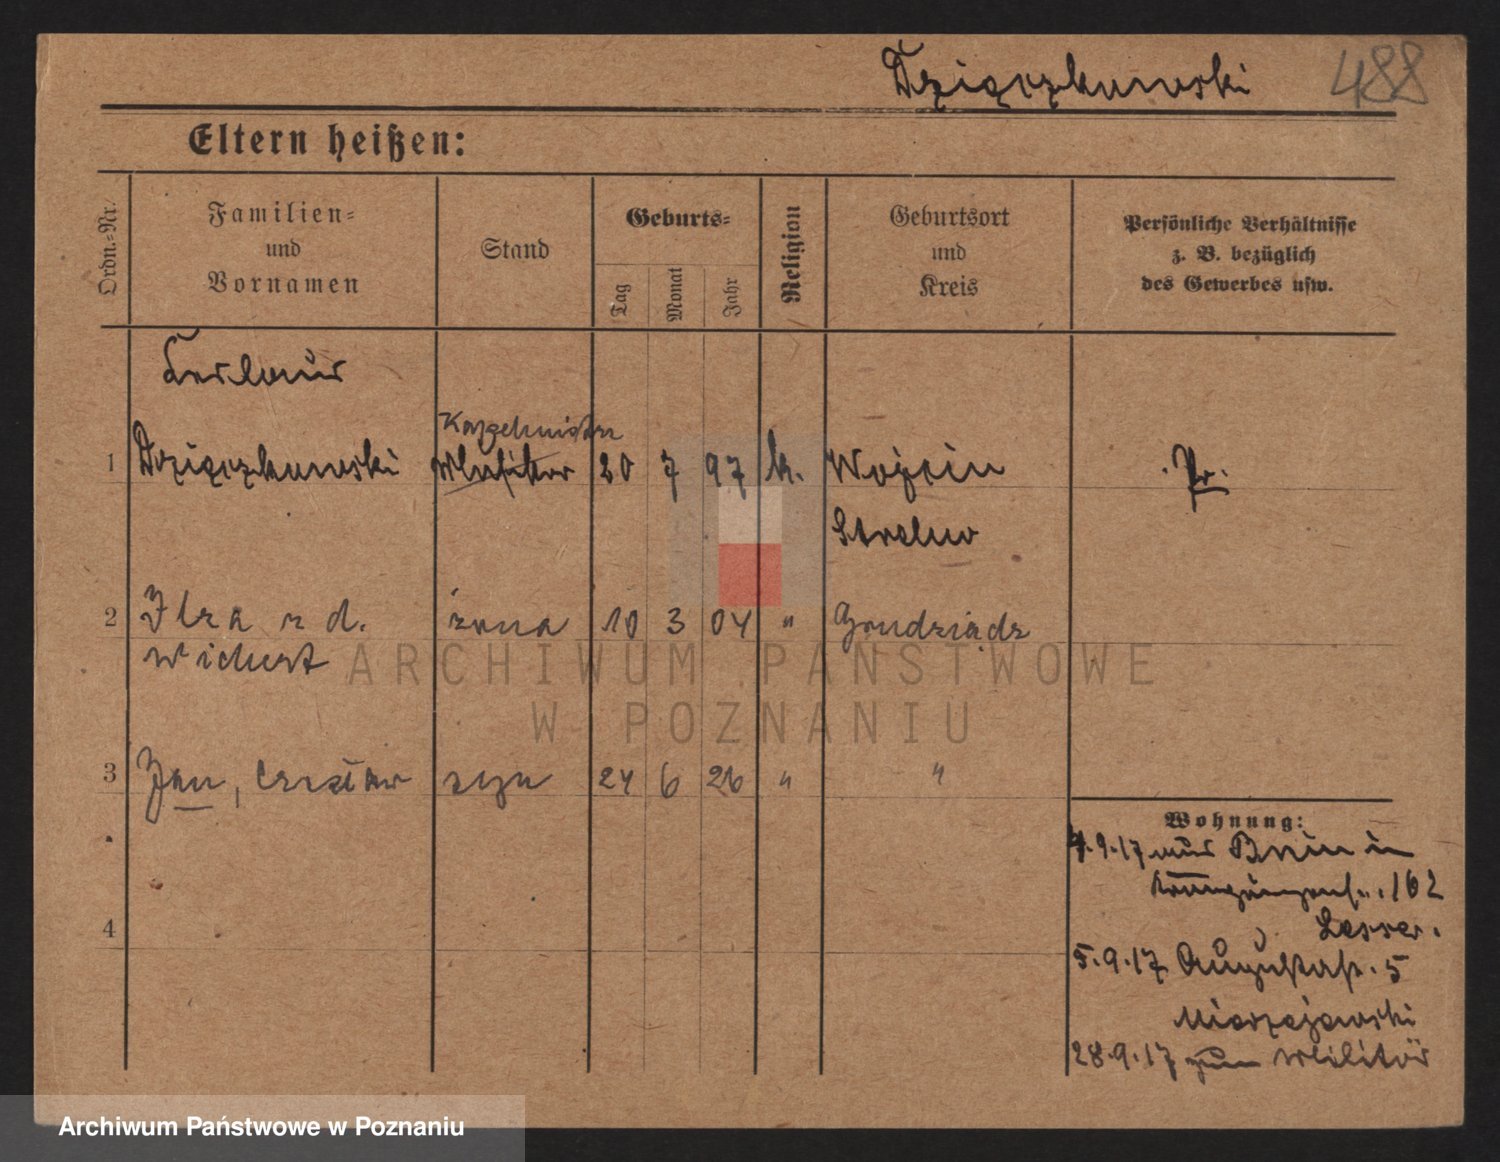 Dzięczkowski 488
Eltern heißen:
Ordn.-Nr.
Familien-
und
Vornamen
Stand
Geburts-
Tag
Monat
Jahr
Religion
Geburtsort
und
Kreis
Persönliche Verhältnisse
z. B. bezüglich
des Gewerbes usw.
Kapelmistrz
1 Dzięczkowski Musiker 20 7 97 k. Wojcin Pr.
Strelno
2 z d. żona 10 3 04 " Grudziądz
Wichert
3 Jan, Czesław syn 24 6 26 " "
4
Wohnung:
4.9.17 aus Bnin in
162
Lesser.
5.9.17 Augustastr. 5
28.9.17 zum Militär
ARCHIWUM PAŃSTWOWE
W POZNANIU
Archiwum Państwowe w Poznaniu